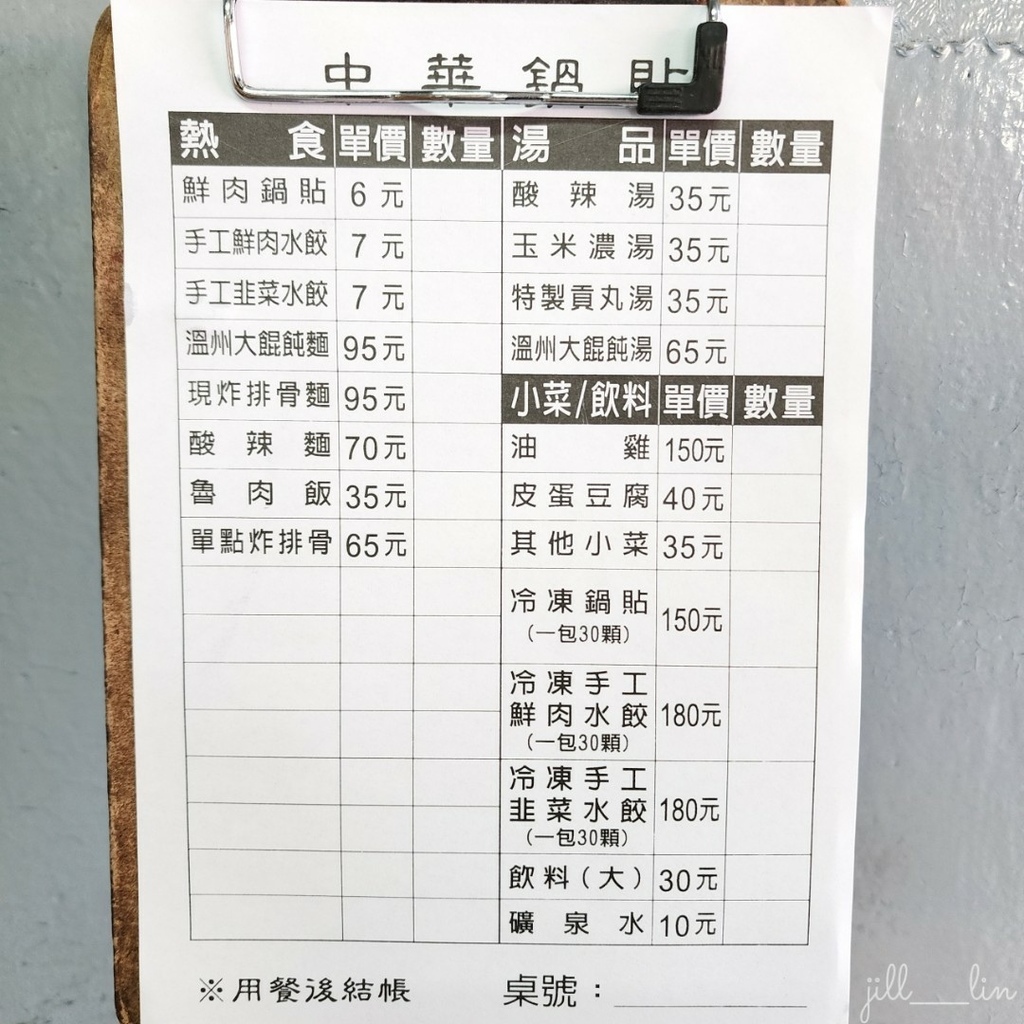 中華鍋貼
熱食 單價 數量 湯品 單價 數量
鮮肉鍋貼 6元 酸辣湯 35元
手工鮮肉水餃 7元 玉米濃湯 35元
手工韭菜水餃 7元 特製貢丸湯 35元
溫州大餛飩麵 95元 溫州大餛飩湯 65元
現炸排骨麵 95元 小菜/飲料 單價 數量
酸辣麵 70元 油雞 150元
魯肉飯 35元 皮蛋豆腐 40元
單點炸排骨 65元 其他小菜 35元
冷凍鍋貼 150元
(一包30顆)
冷凍手工
鮮肉水餃 180元
(一包30顆)
冷凍手工
韭菜水餃 180元
(一包30顆)
飲料(大) 30元
礦泉水 10元
※用餐後結帳 桌號：
jill___lin